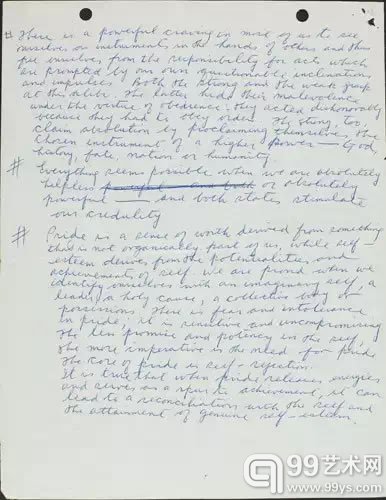 # There is a powerful craving in most of us to see
ourselves as instruments in the hands of others and thus
free ourselves from the responsibility for acts which
are prompted by our own questionable inclinations
and impulses. Both the strong and the weak grasp
at this alibi. The latter hide their malevolence
under the virtue of obedience: they acted dishonorably
because they had to obey orders. The strong, too,
claim absolution by proclaiming themselves the
chosen instrument of a higher power — God,
history, fate, nation or humanity.
# Everything seems possible when we are absolutely
helpless powerful or absolutely
powerful — and both states stimulate
our credulity
# Pride is a sense of worth derived from something
that is not organically part of us, while self
esteem derives from the potentialities and
achievements of self. We are proud when we
identify ourselves with an imaginary self, a
leader, a holy cause, a collective body or
possessions. There is fear and intolerance
in pride; it is sensitive and uncompromising
The less promise and potency in the self,
the more imperative is the need for pride
The core of pride is self-rejection.
It is true that when pride releases energies
and serves as a spur to achievement, it can
lead to a reconciliation with the self and
the attainment of genuine self-esteem.
99艺术网
www.99ys.com